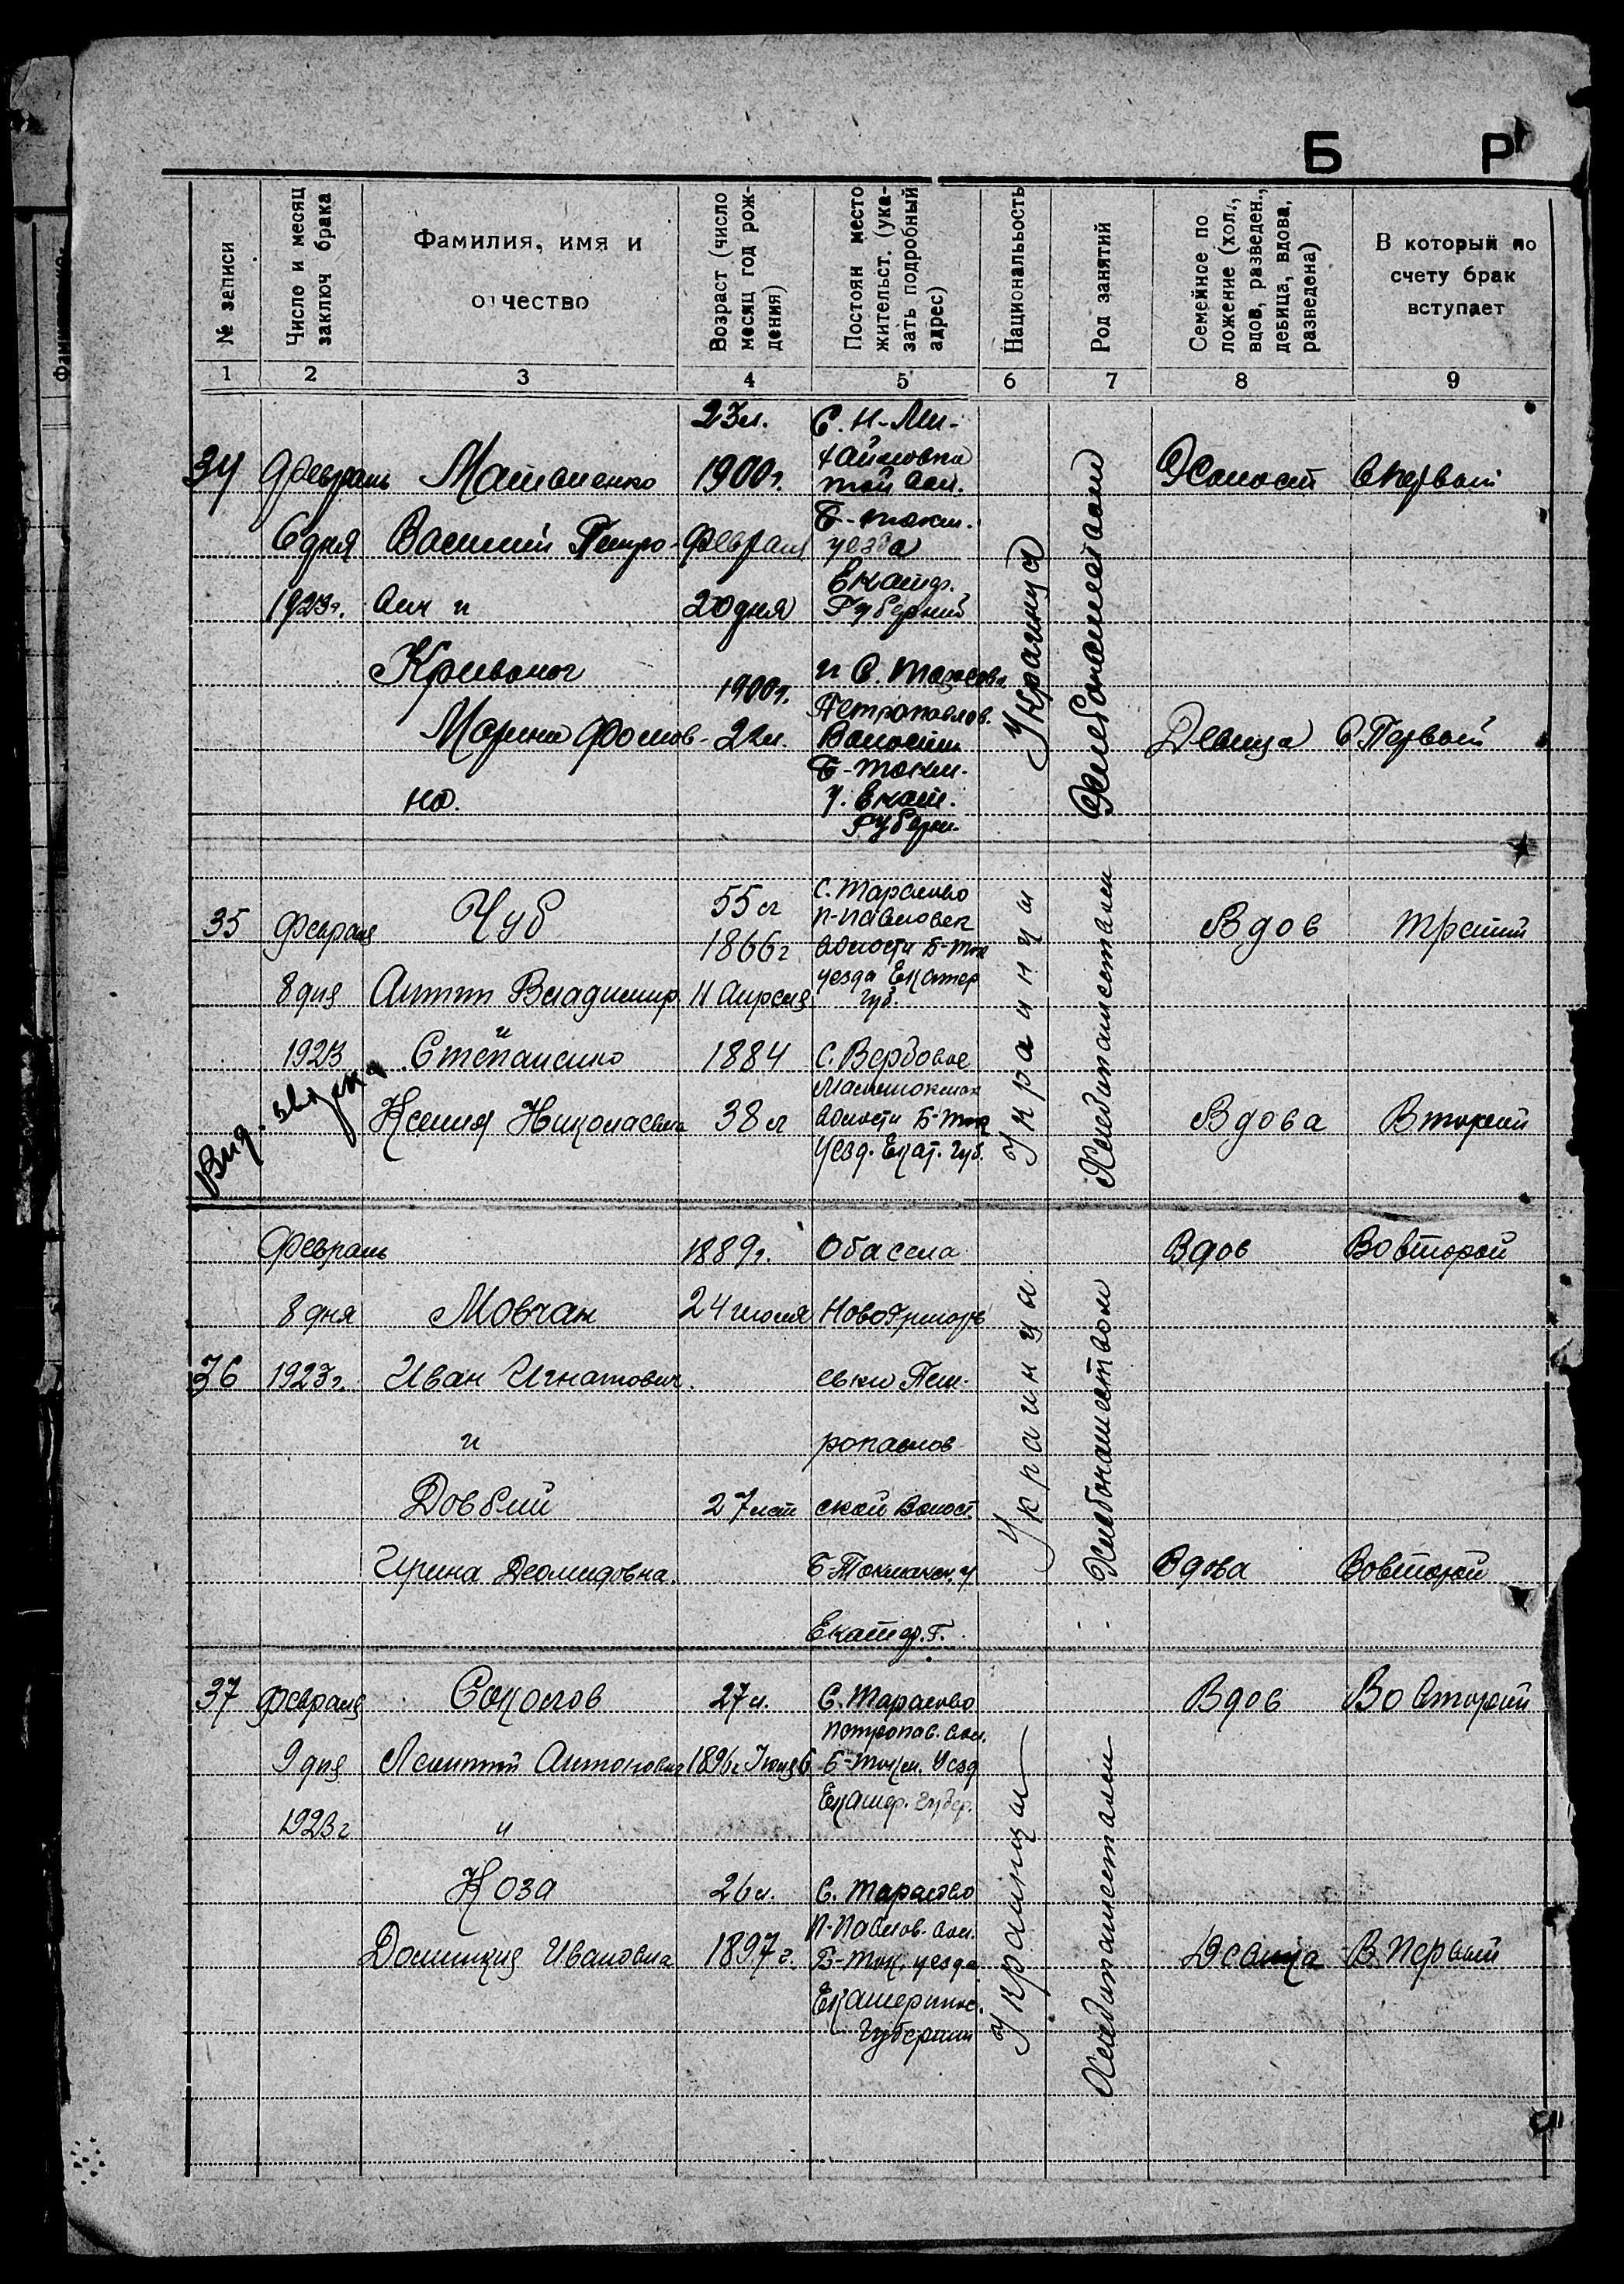 Б Р
№ записи
Число и месяц
заключ брака
Фамилия, имя и
отчество
Возраст (число
месяц год рож-
дения)
Постоян место
жительст. (ука-
зать подробный
адрес)
Национальность
Род занятий
Семейное по
ложение (хол.,
вдов, разведен.,
девица, вдова,
разведена)
В который по
счету брак
вступает
1 2 3 4 5 6 7 8 9
34
Февраль
6 дня
1923г.
Матвиенко
Василий Петро-
вич и
Кривоног
Марина Фомов-
на.
23л.
1900г.
Февраля
20 дня
1900г.
22л.
С. Н-Ми-
хайловка
той вол.
Б-токм.
уезда
Екатер.
Губернии
и С. Тарасовк
Петропавлов.
Волости
Б-токм.
у. Екат.
Губерн.
Украинцы
Хлебопашеством
Холост
Девица
В первый
В Первый
35
Февраля
8 дня
1923
Вид.
Чуб
Антип Владимир
и
Степаненко
Ксения Николаевна
55 л
1866 г
11 Апреля
1884
38 л
С. Тарасовко
П-Павловск
волости Б-Ток
уезда Екатер
губ.
С. Вербовое
волости Б-Ток
Уезд. Екат. Губ.
Украинцы
Хлебопашествали
Вдов
Вдова
Третий
Вторый
36
Февраль
8 дня
1923г.
Мовчан
Иван Игнатович.
и
Довбий
Ирина Деомидовна.
1889г.
24 июля
27 лет
Оба села
Новогригорь
евки Пет-
ропавлов
ской Волост.
Б-Токмакск. у.
Екатер. Г.
Украинцы.
Хлебопашеством
Вдов
Вдова
Во второй
Во второй
37
Февраля
9 дня
1923 г
Соколов
Леонтий Антонович
и
Коза
Домникия Ивановна
27 л.
1896 г. Июня 6
26 л.
1897 г.
С. Тарасовко
Петропав. вол.
Б-Токм. Уезд
Екатер. Губер.
С. Тарасовко
П-Павлов. вол.
Б-Ток. уезда
Екатеринос.
Губернии
Украинцы
Хлебопашествали
Вдов
Девица
Во вторый
В Первый